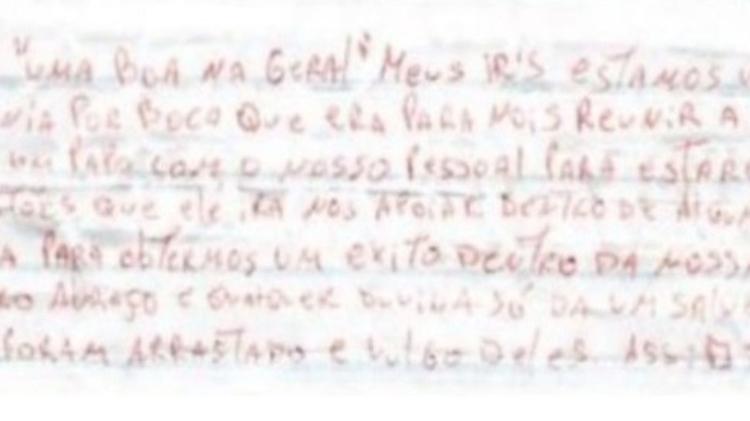 "UMA BOA NA GERAL" MEUS IR'S ESTAMOS
POR BOCA QUE ERA PARA NOIS REUNIR A
UM PAPO COM O NOSSO PESSOAL PARA
QUE ELE IRA NOS APOIAR DENTRO DE
A PARA OBTERMOS UM EXITO DENTRO DA NOSSA
ABRAÇO E QUALQUER DUVIDA SÓ DA UM
FORAM ARRASTADO E VULGO DELES